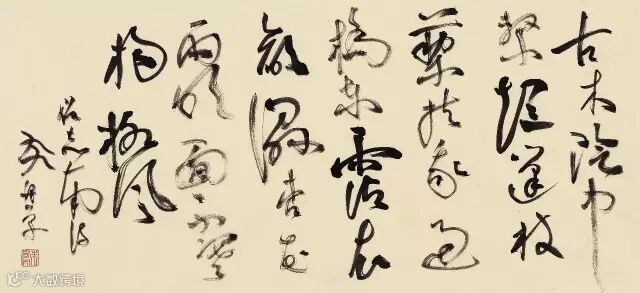 古木陰中
繫短篷杖
藜扶我過
橋東霑衣
欲濕杏花
雨吹面不寒
楊柳風
僧志南詩
大数跨境